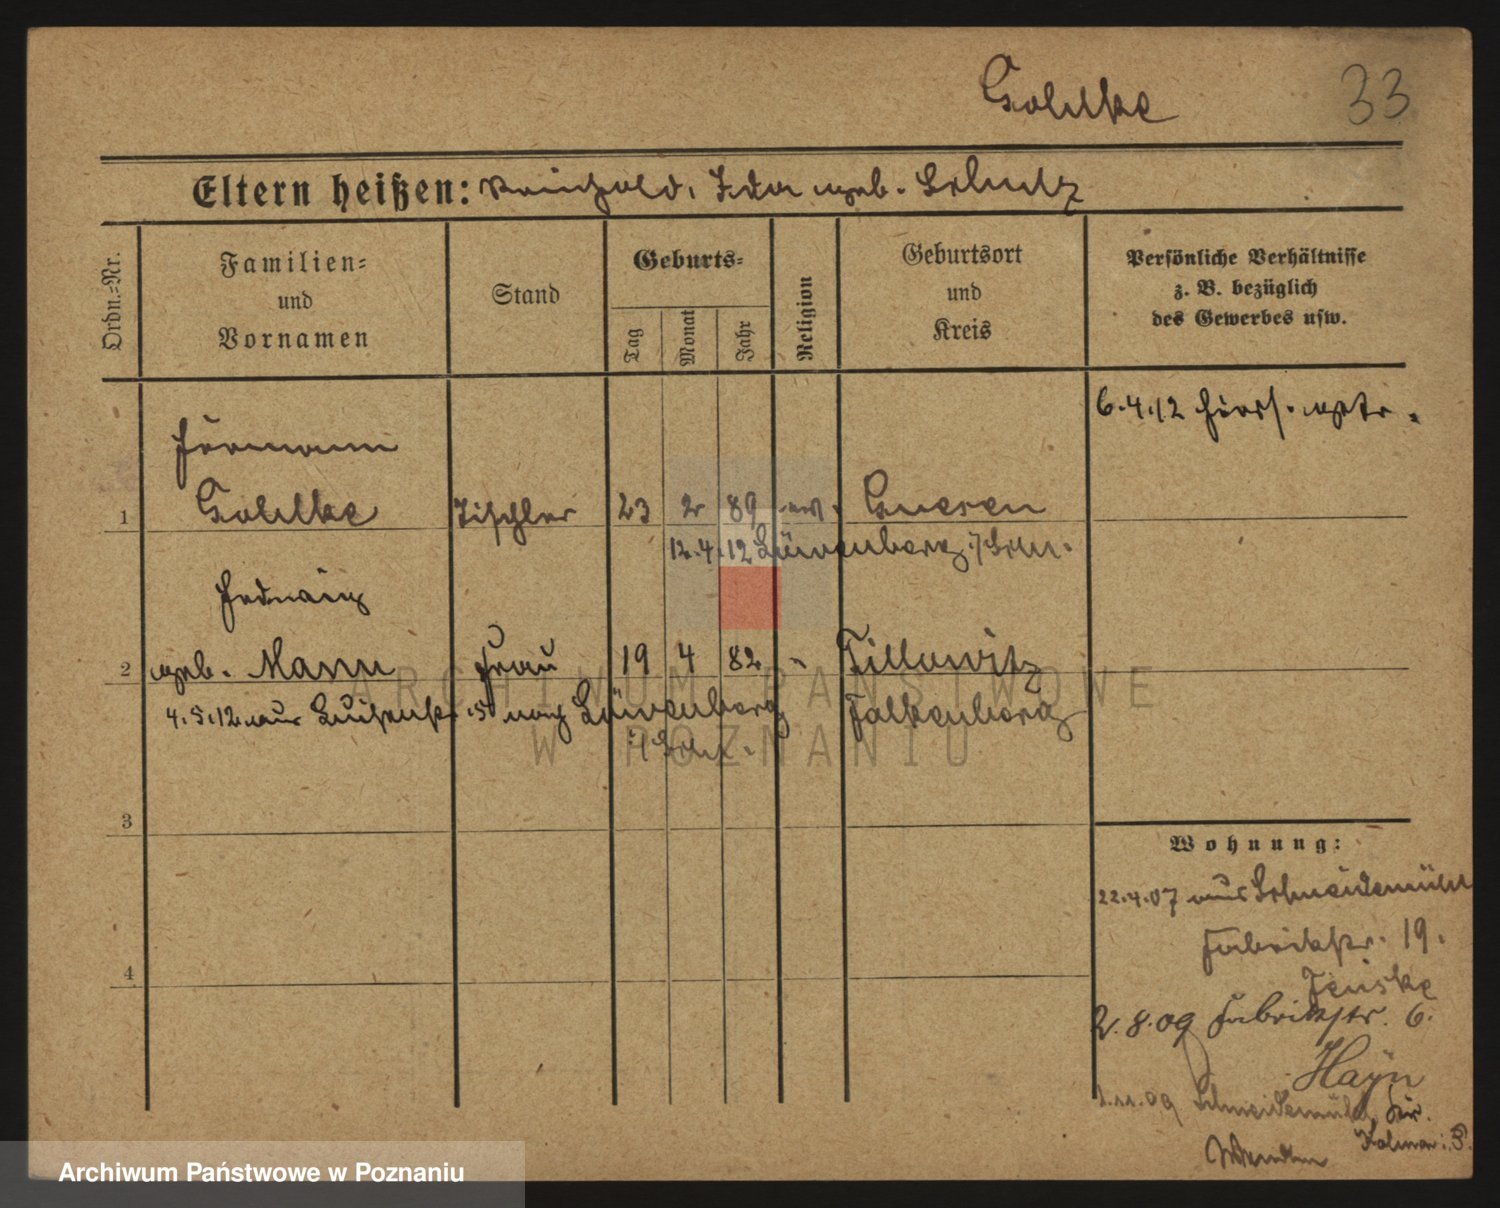 Gohlke 33
Eltern heißen: Reinhold, Ida geb. Schulz
Ordn.-Nr.
Familien- und Vornamen
Stand
Geburts-
Tag
Monat
Jahr
Religion
Geburtsort und Kreis
Persönliche Verhältnisse
z. B. bezüglich
des Gewerbes usw.
6.4.12
Hermann
1 Gohlke Tischler 23 2 89 ev. Gueren
12.4.12 Löwenberg i/Schl.
Hedwig
2 geb. Mann Frau 19 4 82 " Tillowitz
4.5.12 aus 5 nach Löwenberg Falkenberg
i/Schl.
3
4
Wohnung:
22.4.07 aus Schneidemühl
Fabrikstr. 19.
Jenske
2.8.09 Fabrikstr. 6.
Hayn
1.11.09 Schneidemühl
Kolmar i. P.
ARCHIWUM PAŃSTWOWE
W POZNANIU
Archiwum Państwowe w Poznaniu